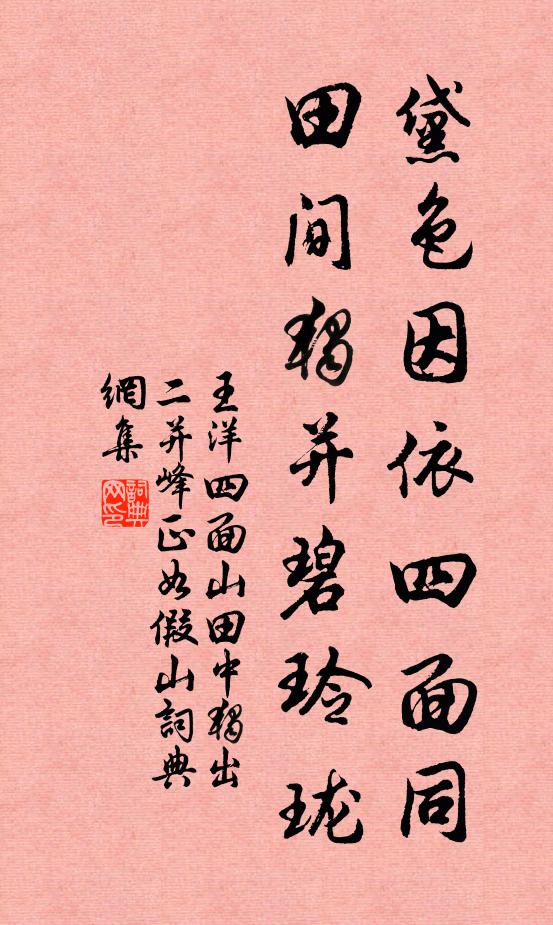 黛色因依四面同
田间獨并碧玲珑
王洋四面山田中獨出
二并峰正如假山詞典
網集
詞典网印